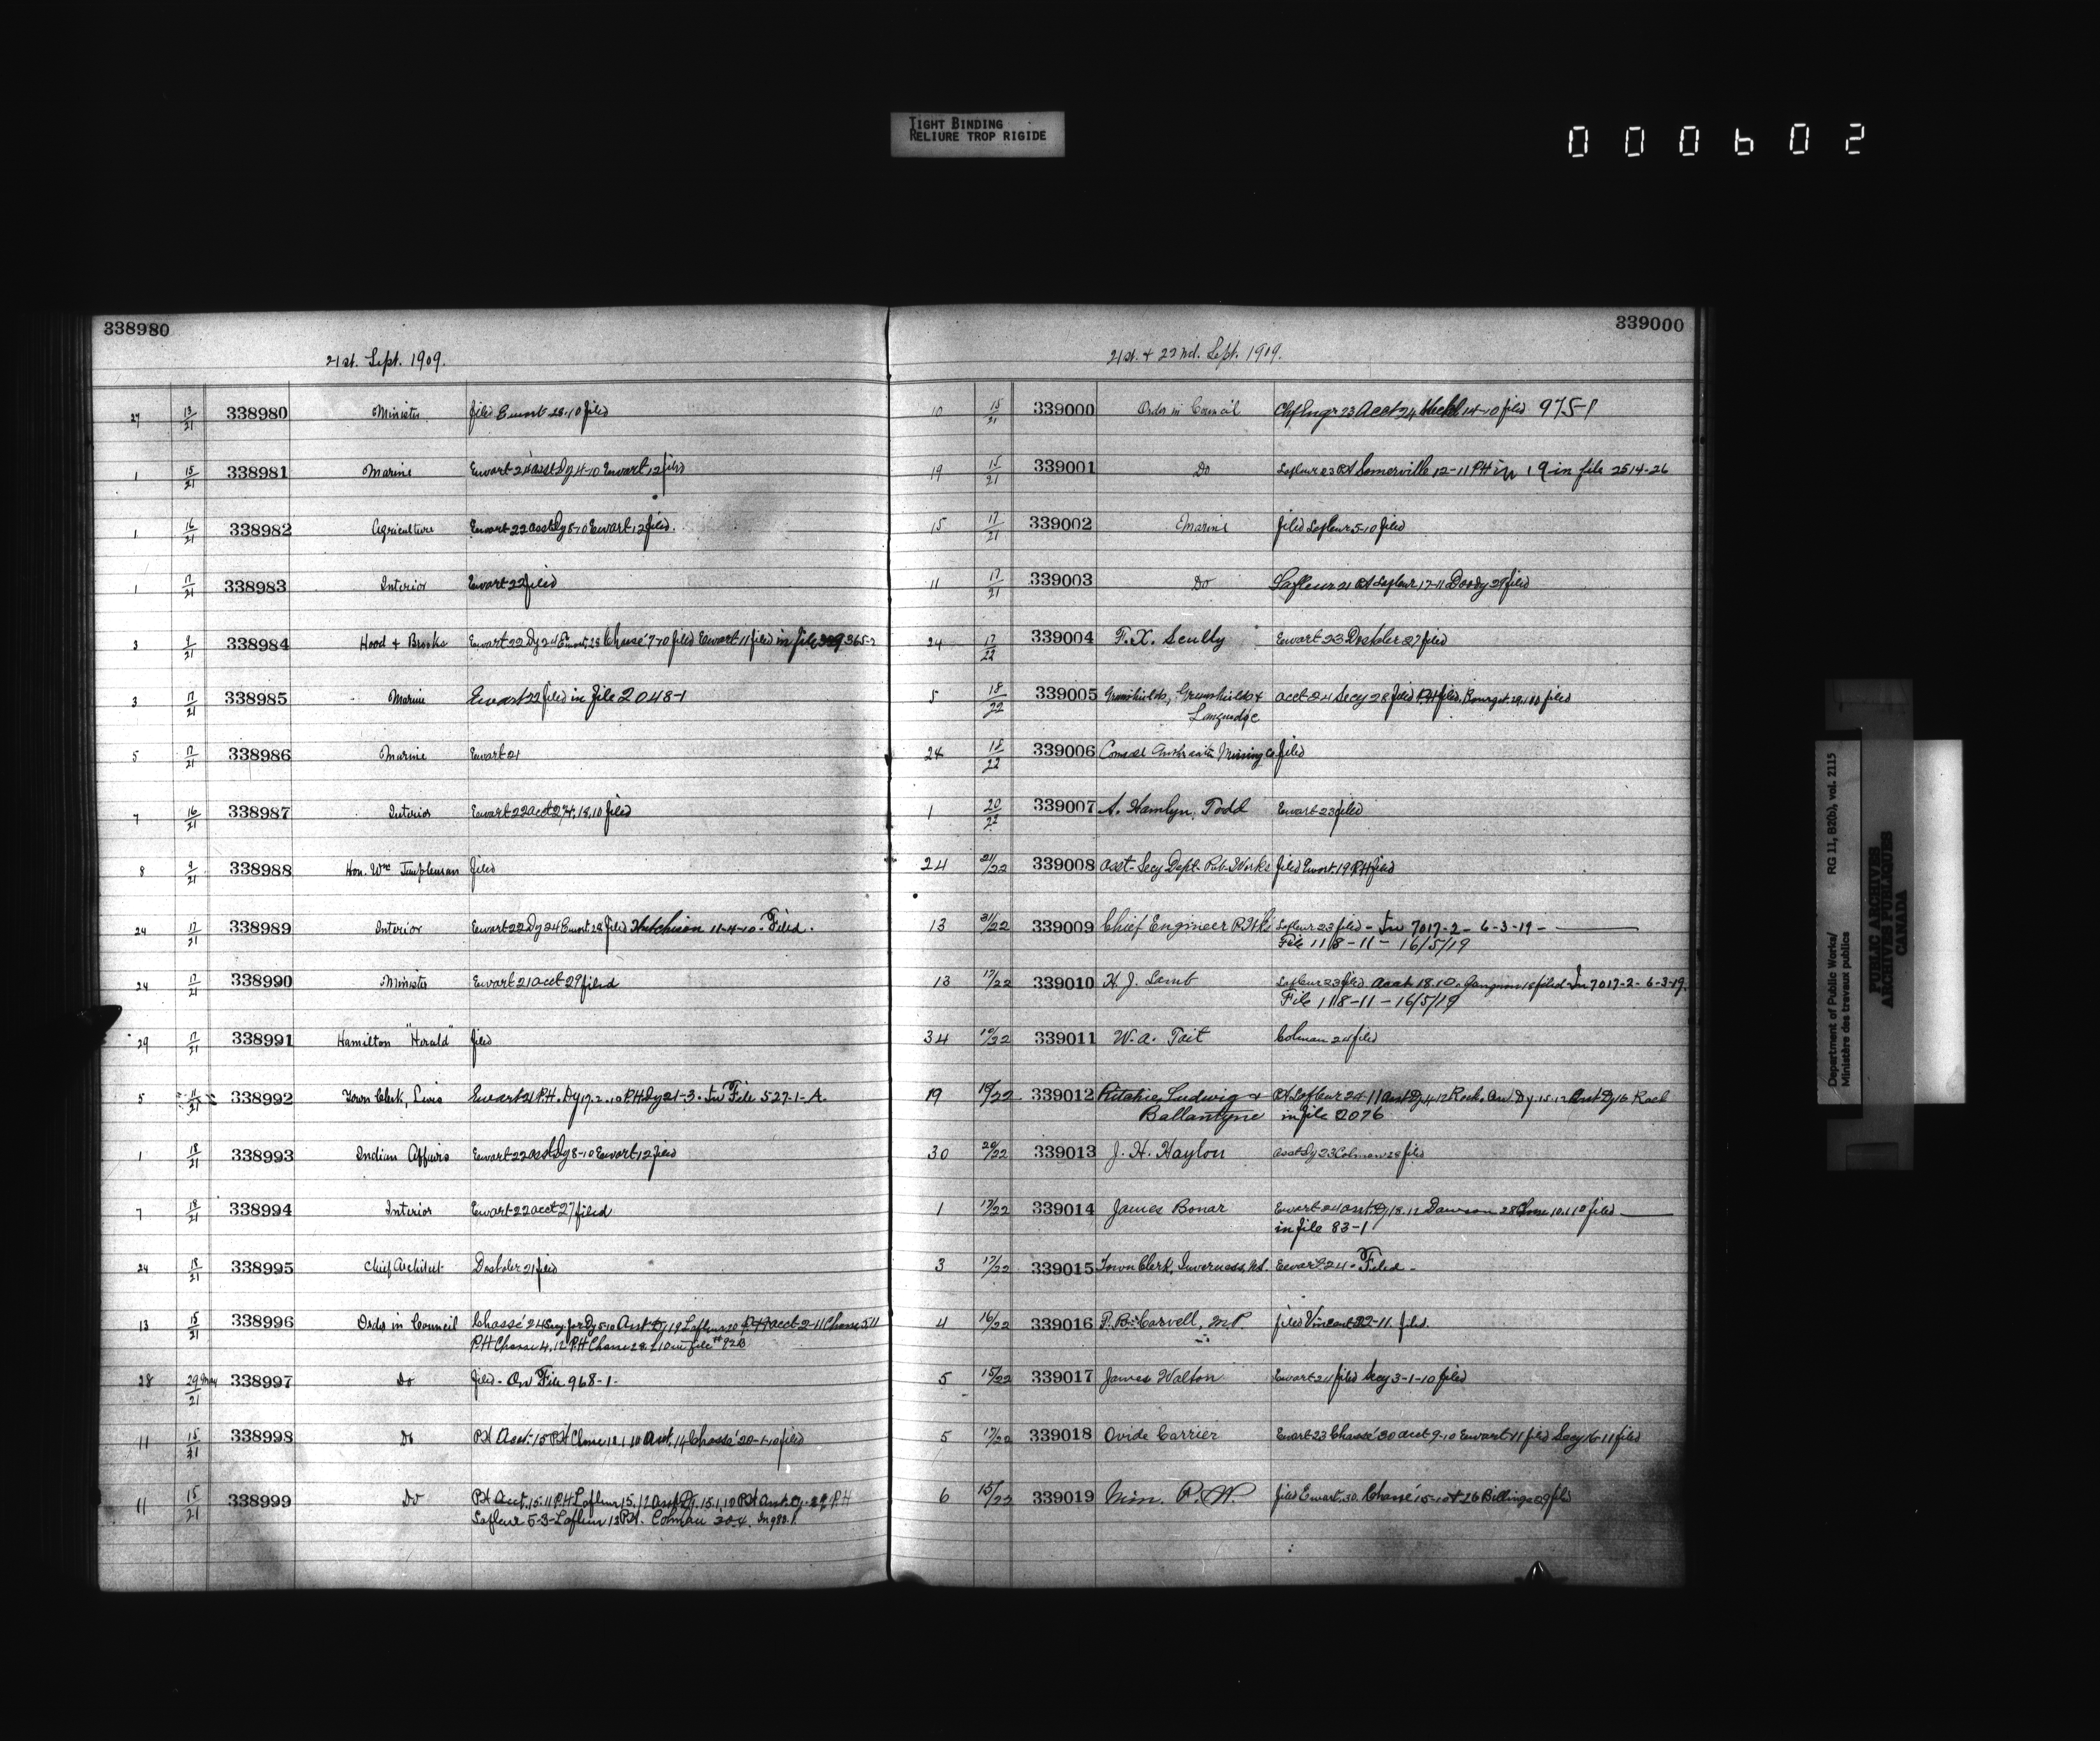 TIGHT BINDING
RELIURE TROP RIGIDE
000602
338980
21st. Sept. 1909.
27 13/21 338980 Minister filed Ewart 28-10 filed
1 15/21 338981 Marine Ewart 24 asst Dy 4-10 Ewart 12 filed
1 16/21 338982 Agriculture Ewart 22 asst Dy 8-10 Ewart 12 filed.
1 17/21 338983 Interior Ewart 22 filed
3 9/21 338984 Hood & Brooks Ewart 22 Dy 24 Ewart 28 Chassé 7-10 filed Ewart 11 filed in file 365-2
3 17/21 338985 Marine Ewart 22 filed in file 2048-1
5 17/21 338986 Marine Ewart 21
7 16/21 338987 Interior Ewart 22 acct 27 18.10 filed
8 9/21 338988 Hon. Wm Templeman filed
24 17/21 338989 Interior Ewart 22 Dy 24 Ewart 28 filed Hutchison 11-4-10. Filed.
24 17/21 338990 Minister Ewart 21 acct 29 filed
29 17/21 338991 Hamilton "Herald" filed
5 11/21 338992 Town Clerk, Ewart 21 P.H. Dy 17.2.10 P.H. Dy 21-3. In File 527-1-A.
1 18/21 338993 Indian Affairs Ewart 22 asst Dy 8-10 Ewart 12 filed
7 18/21 338994 Interior Ewart 22 acct 27 filed
24 18/21 338995 Chief Architect Dostaler 21 filed
13 15/21 338996 Order in Council Chassé 24 Dy 5-10 Asst Dy 19 Lafleur 20 P.H. acct 2-11 Chassé 5 11
P.H. Chasse 4.12 P.H. Chasse 28. 1 10 in file # 92B
28 29 May/21 338997 Do filed. On File 968-1.
11 15/21 338998 Do P.H. Acct. 15 P.H. Chasse 12 1 10 Acct. 14 Chassé 20-1-10 filed
11 15/21 338999 Do P.H. Acct. 15.11 P.H. Lafleur 15.12 Asst Dy. 15.1.10 P.H. Asst. Dy. P.H
Lafleur 5-3-Lafleur 13 P.H. Colman 30 4. In 980.1
339000
21st. & 22nd. Sept. 1909.
10 15/21 339000 Order in Council Chf Engr 23 Acct 24 14-10 filed 975-1
19 15/21 339001 Do Lafleur 23 P.H. Somerville 12-11 P.H. in 19 in file 2514-26
15 17/21 339002 Marine filed Lafleur 5-10 filed
11 17/21 339003 Do Lafleur 21 P.H. Lafleur 17-11 Doody 29 filed
24 17/22 339004 F. X. Scully Ewart 23 Dostaler 27 filed
5 18/22 339005 Greenshields, Greenshields & acct 24 Secy 28 filed P.H. filed. Bourget. 29.1 filed
Languedoc
24 18/22 339006 Consol Anthracite Mining Co filed
1 20/22 339007 A. Hamlyn Todd Ewart 23 filed
24 21/22 339008 Asst. Secy Dept. Pub. Works filed Ewart 19 P.H. filed
13 21/22 339009 Chief Engineer Lafleur 23 filed - In 7017-2- 6-3-19-
File 1118-11- 16/5/19
13 17/22 339010 H. J. Lamb Lafleur 23 filed. Acct 18.10. Gagnon 18 filed In 7017-2- 6-3-19.
File 1118-11-16/5/19
34 19/22 339011 W. A. Tait Colman 24 filed
19 19/22 339012 Ritchie, Ludwig & P.H. Lafleur 24-11 Asst Dy 4-12 Roch. Asst Dy. 15.12 Asst Dy 16 Roch
Ballantyne in file 2076
30 20/22 339013 J. H. Haylon asst Dy 23 Colman 28 filed
1 17/22 339014 James Bonar Ewart 24 asst. Dy 18.12 Dawson 28 10.1 10 filed
in file 83-1
3 17/22 339015 Town Clerk, Inverness, N.S. Ewart 24. Filed.
4 16/22 339016 F. B. Carvell, M.P. filed Vincent 22-11. filed.
5 15/22 339017 James Walton Ewart 24 filed Secy 3-1-10 filed
5 17/22 339018 Ovide Carrier Ewart 23 Chassé 30 acct 9-10 Ewart 11 filed Secy 16-11 filed
6 15/22 339019 Min. P. W. filed Ewart 30. Chassé 15-10 & 26 Billings 29 filed
Department of Public Works/ RG 11, B2(b), vol. 2115
Ministère des travaux publics
PUBLIC ARCHIVES
ARCHIVES PUBLIQUES
CANADA